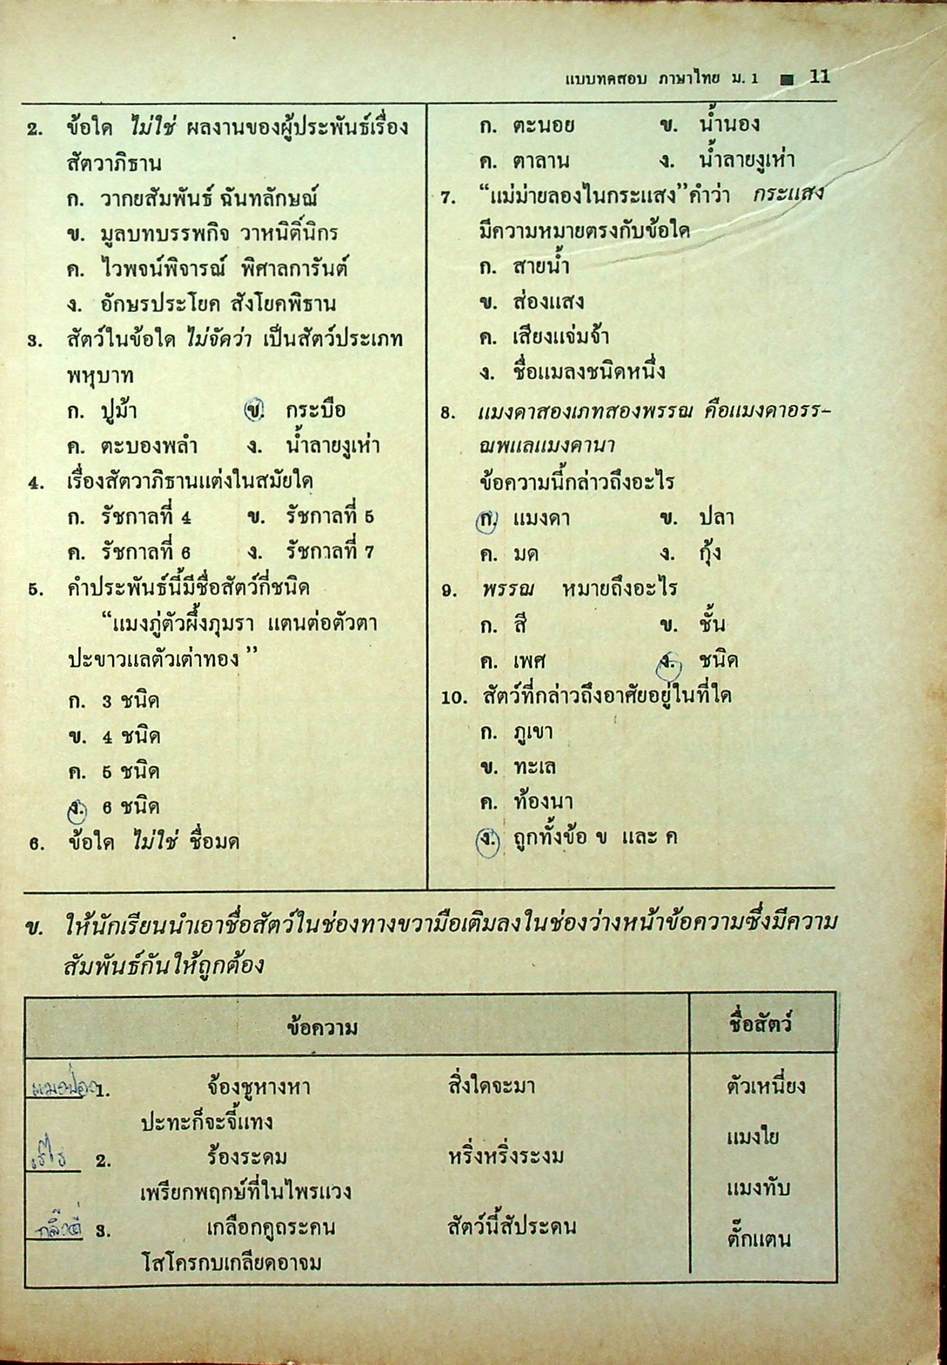 แบบทดสอบ ภาษาไทย ม. 1 ■ 11
2. ข้อใด ไม่ใช่ ผลงานของผู้ประพันธ์เรื่อง
สัตวาภิธาน
ก. วากยสัมพันธ์ ฉันทลักษณ์
ข. มูลบทบรรพกิจ วาหนิติ์นิกร
ค. ไวพจน์พิจารณ์ พิศาลการันต์
ง. อักษรประโยค สังโยคพิธาน
3. สัตว์ในข้อใด ไม่จัดว่า เป็นสัตว์ประเภท
พหุบาท
ก. ปูม้า ข. กระบือ
ค. ตะบองพลำ ง. น้ำลายงูเห่า
4. เรื่องสัตวาภิธานแต่งในสมัยใด
ก. รัชกาลที่ 4 ข. รัชกาลที่ 5
ค. รัชกาลที่ 6 ง. รัชกาลที่ 7
5. คำประพันธ์นี้มีชื่อสัตว์กี่ชนิด
“แมงภู่ตัวผึ้งภุมรา แตนต่อตัวตา
ปะขาวแลตัวเต่าทอง”
ก. 3 ชนิด
ข. 4 ชนิด
ค. 5 ชนิด
ง. 6 ชนิด
6. ข้อใด ไม่ใช่ ชื่อมด
ก. ตะนอย ข. น้ำนอง
ค. ตาลาน ง. น้ำลายงูเห่า
7. “แม่ม่ายลองในกระแสง”คำว่า กระแสง
มีความหมายตรงกับข้อใด
ก. สายน้ำ
ข. ส่องแสง
ค. เสียงแจ่มจ้า
ง. ชื่อแมลงชนิดหนึ่ง
8. แมงดาสองเภทสองพรรณ คือแมงดาอรร-
ณพแลแมงดานา
ข้อความนี้กล่าวถึงอะไร
ก. แมงดา ข. ปลา
ค. มด ง. กุ้ง
9. พรรณ หมายถึงอะไร
ก. สี ข. ชั้น
ค. เพศ ง. ชนิด
10. สัตว์ที่กล่าวถึงอาศัยอยู่ในที่ใด
ก. ภูเขา
ข. ทะเล
ค. ท้องนา
ง. ถูกทั้งข้อ ข และ ค
ข. ให้นักเรียนนำเอาชื่อสัตว์ในช่องทางขวามือเติมลงในช่องว่างหน้าข้อความซึ่งมีความ
สัมพันธ์กันให้ถูกต้อง
ข้อความ ชื่อสัตว์
แมงป่อง 1. จ้องชูหางหา สิ่งใดจะมา ตัวเหนี่ยง
ปะทะก็จะจี้แทง
แมงใย
เรไร 2. ร้องระดม หริ่งหริ่งระงม
เพรียกพฤกษ์ที่ในไพรแวง แมงทับ
3. เกลือกคูถระคน สัตว์นี้สัประดน ตั๊กแตน
โสโครกบเกลียดอาจม